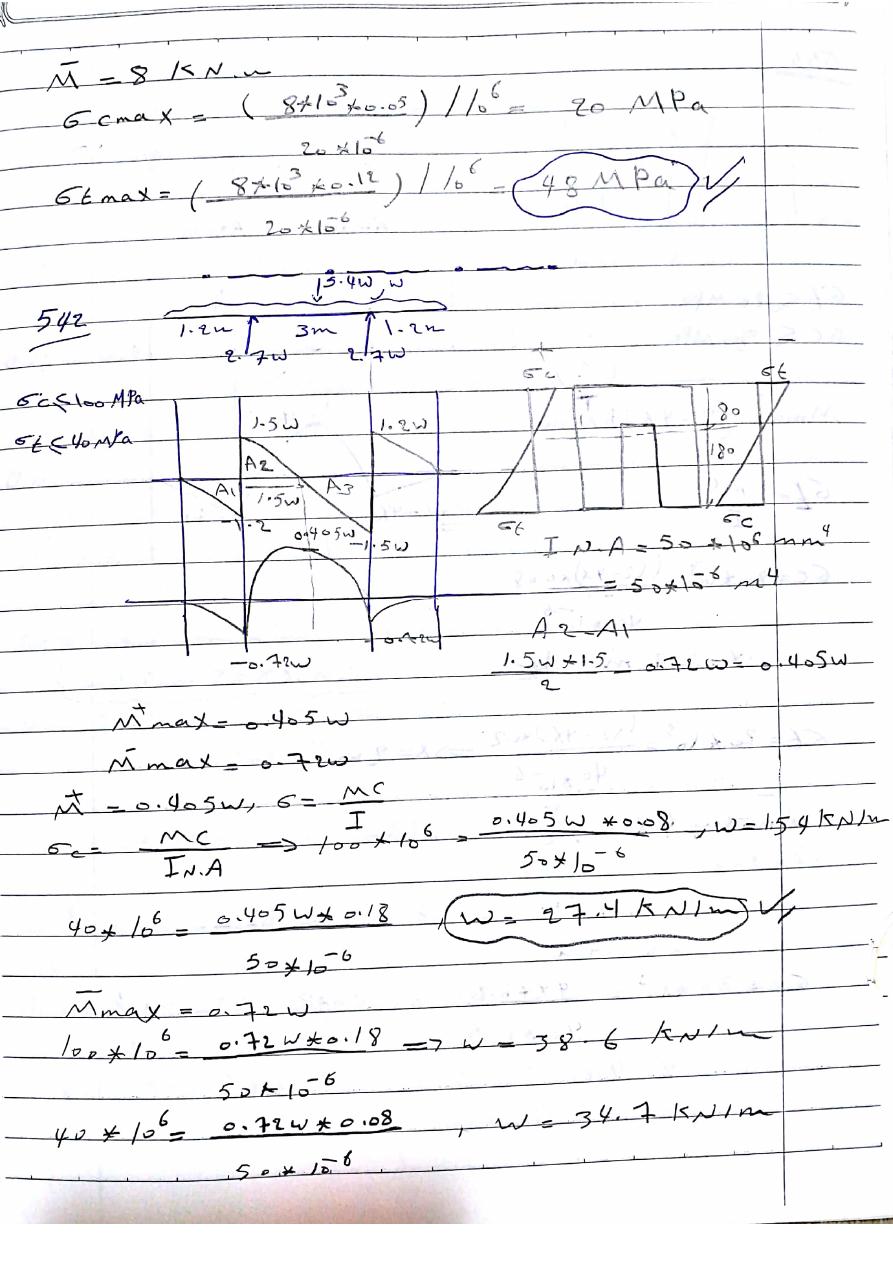 M̄ = 8 KN.m
σcmax = ( 8*10³*0.05 / 20*10⁻⁶ ) / 10⁶ = 20 MPa
σtmax = ( 8*10³*0.12 / 20*10⁻⁶ ) / 10⁶ = 48 MPa ✓
5.4w, w
542
1.2m 3m 1.2m
2.7w 2.7w
+ σc
- σt
σc ≤ 100 MPa
σt ≤ 40 MPa
1.5w 1.2w
80
180
A1 A2 A3
1.5w
-1.2
0.405w -1.5w
σt σc
I N.A = 50 * 10⁶ mm⁴
= 50*10⁻⁶ m⁴
-0.72w
A2 - A1
1.5w*1.5 / 2 - 0.72w = 0.405w
M⁺max = 0.405w
M̄ max = 0.72w
M⁺ = 0.405w, σ = MC / I
σc = MC / I N.A => 100*10⁶ = 0.405w*0.08 / 50*10⁻⁶, w = 154 KN/m
40*10⁶ = 0.405w*0.18 / 50*10⁻⁶, w = 27.4 KN/m ✓
M̄max = 0.72w
100*10⁶ = 0.72w*0.18 / 50*10⁻⁶ => w = 38.6 KN/m
40*10⁶ = 0.72w*0.08 / 50*10⁻⁶, w = 34.7 KN/m